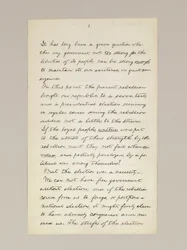 It has long been a grave question whe-
ther any government, not too strong for the
liberties of its people, can be strong enough
to maintain its own existence, in great emer-
gencies.
On this point the present rebellion
brought our republic to a severe test;
and a presidential election occurring
in regular course during the rebellion
added not a little to the strain.
If the loyal people, united, were put
to the utmost of their strength by the
rebellion, must they not fail when di-
vided, and partially paralized, by a po-
litical war among themselves?
But the election was a necessity.
We can not have free government
without elections; and if the rebellion
could force us to forego, or postpone a
national election, it might fairly claim
to have already conquered and ru-
ined us. The strife of the election